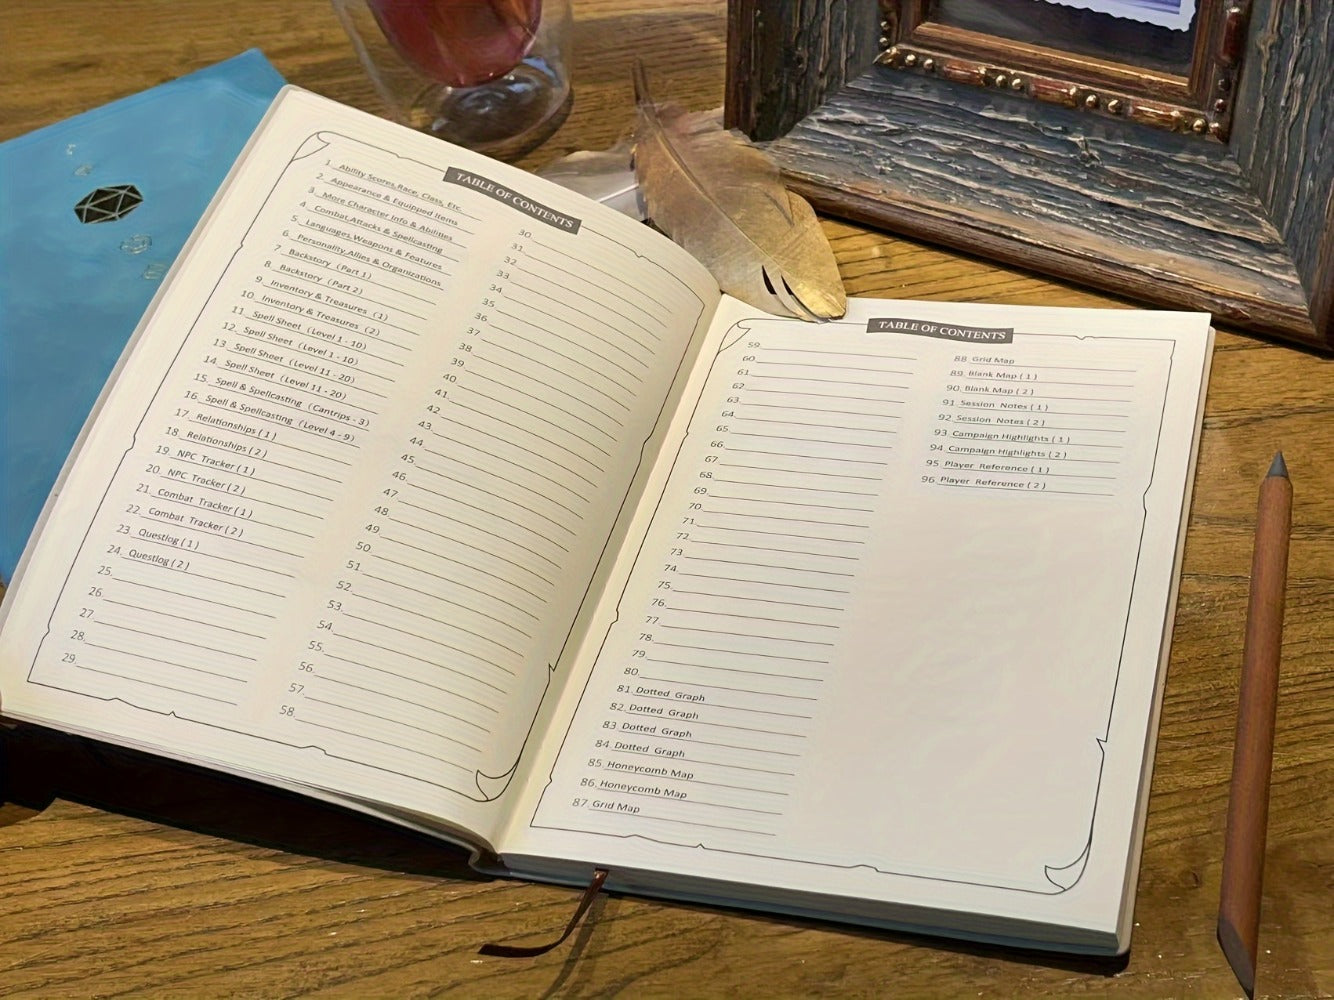 TABLE OF CONTENTS
1. Ability Scores,Race, Class, Etc.
2. Appearance & Equipped Items
3. More Character Info & Abilities
4. Combat,Attacks & Spellcasting
5. Languages,Weapons & Features
6. Personality,Allies & Organizations
7. Backstory (Part 1)
8. Backstory (Part 2)
9. Inventory & Treasures (1)
10. Inventory & Treasures (2)
11. Spell Sheet (Level 1 - 10)
12. Spell Sheet (Level 1 - 10)
13. Spell Sheet (Level 11 - 20)
14. Spell Sheet (Level 11 - 20)
15. Spell & Spellcasting (Cantrips - 3)
16. Spell & Spellcasting (Level 4 - 9)
17. Relationships ( 1 )
18. Relationships ( 2 )
19. NPC Tracker ( 1 )
20. NPC Tracker ( 2 )
21. Combat Tracker ( 1 )
22. Combat Tracker ( 2 )
23. Questlog ( 1 )
24. Questlog ( 2 )
25.
26.
27.
28.
29.
30.
31.
32.
33.
34.
35.
36.
37.
38.
39.
40.
41.
42.
43.
44.
45.
46.
47.
48.
49.
50.
51.
52.
53.
54.
55.
56.
57.
58.
TABLE OF CONTENTS
59.
60.
61.
62.
63.
64.
65.
66.
67.
68.
69.
70.
71.
72.
73.
74.
75.
76.
77.
78.
79.
80.
81. Dotted Graph
82. Dotted Graph
83. Dotted Graph
84. Dotted Graph
85. Honeycomb Map
86. Honeycomb Map
87. Grid Map
88. Grid Map
89. Blank Map ( 1 )
90. Blank Map ( 2 )
91. Session Notes ( 1 )
92. Session Notes ( 2 )
93. Campaign Highlights ( 1 )
94. Campaign Highlights ( 2 )
95. Player Reference ( 1 )
96. Player Reference ( 2 )